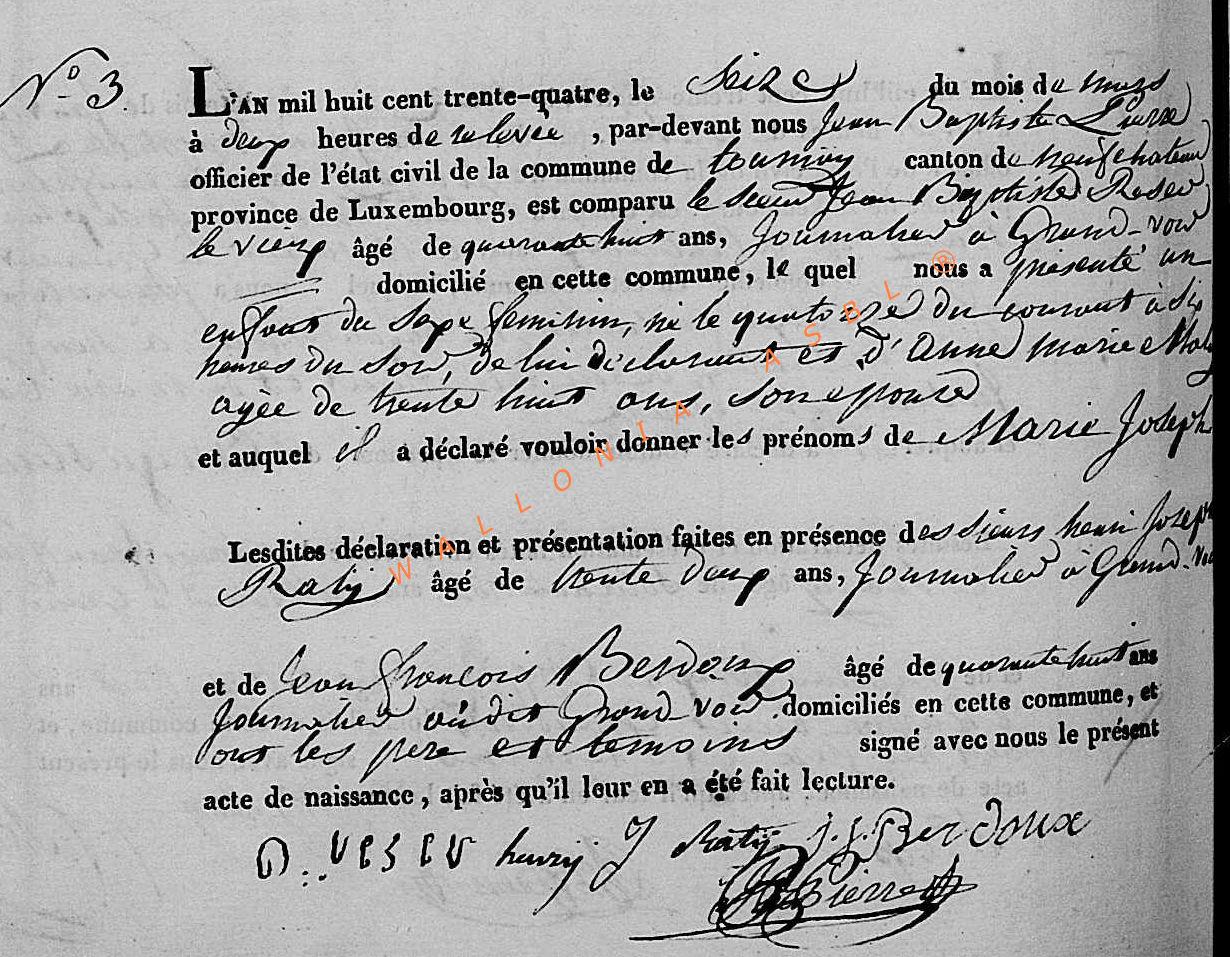 N° 3.
L'AN mil huit cent trente-quatre, le Seize du mois de mars
à deux heures de relevée, par-devant nous Jean Baptiste Pierre
officier de l'état civil de la commune de tournay canton de neufchateau
province de Luxembourg, est comparu le sieur Jean Baptiste
le vieux âgé de quarante huit ans, Journalier à Grand-voir
domicilié en cette commune, le quel nous a présenté un
enfant du sexe feminin, né le quatorze du courant à six
heures du soir, de lui déclarant et d'Anne Marie
agée de trente huit ans, son epouse
et auquel il a déclaré vouloir donner les prénoms de Marie Joseph
Lesdites déclaration et présentation faites en présence des sieurs henri Joseph
Ratij âgé de trente deux ans, Journalier à Grand-voir
et de Jean françois Berdoux âgé de quarante huit ans
Journalier audit Grand voir domiciliés en cette commune, et
ont les pere et temoins signé avec nous le présent
acte de naissance, après qu'il leur en a été fait lecture.
henry J Ratij J. f. Berdoux
Pierre
WALLONIA ASBL ®